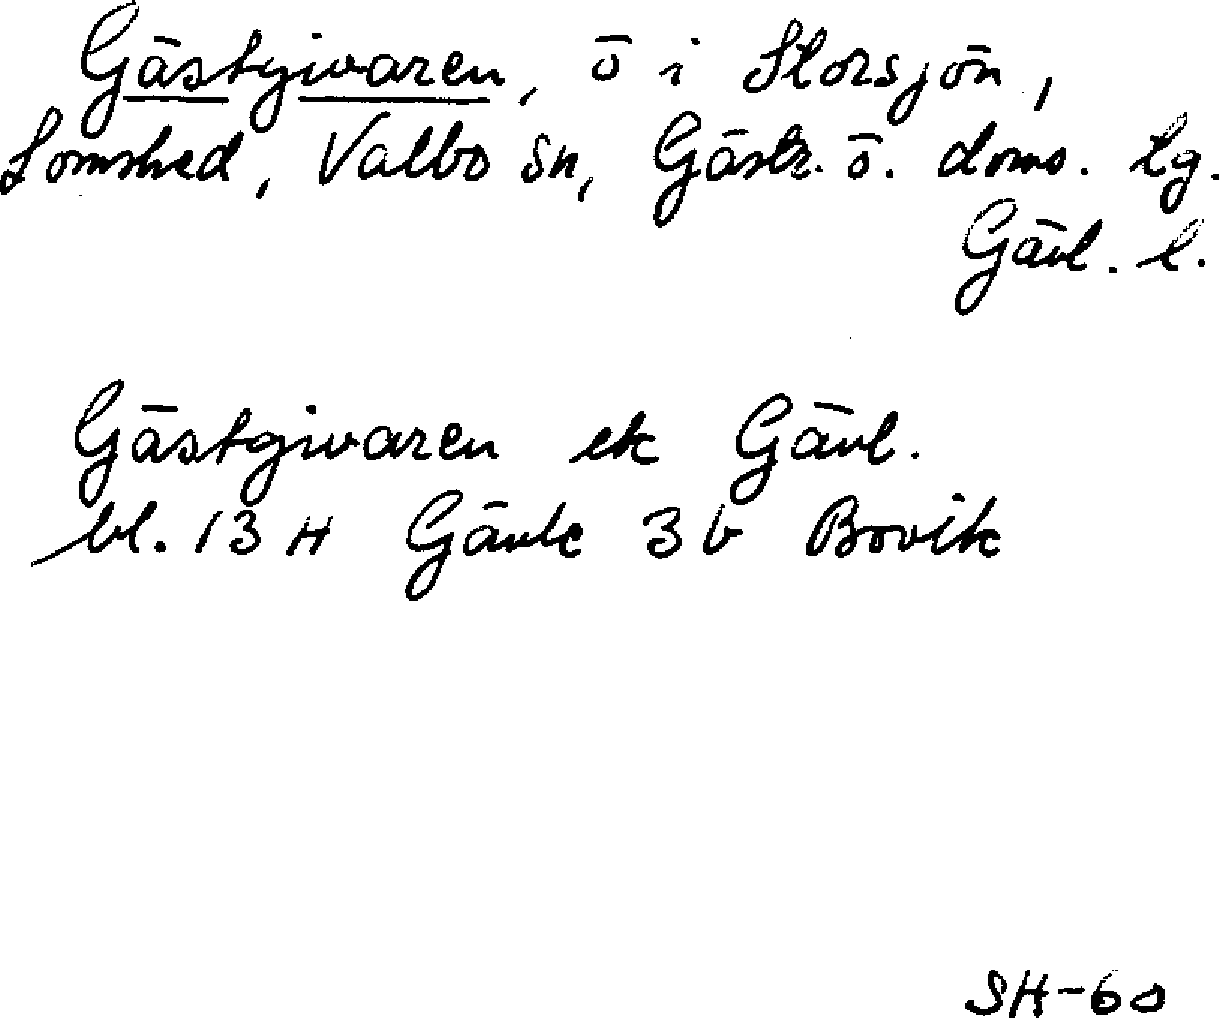 Gästgivaren, ö i Storsjön,
Lomshed, Valbo sn, Gästr. ö. doms. tg.
Gävl. l.
Gästgivaren ek Gävl.
bl. 13 H Gävle 3 b Bovik
SH-60